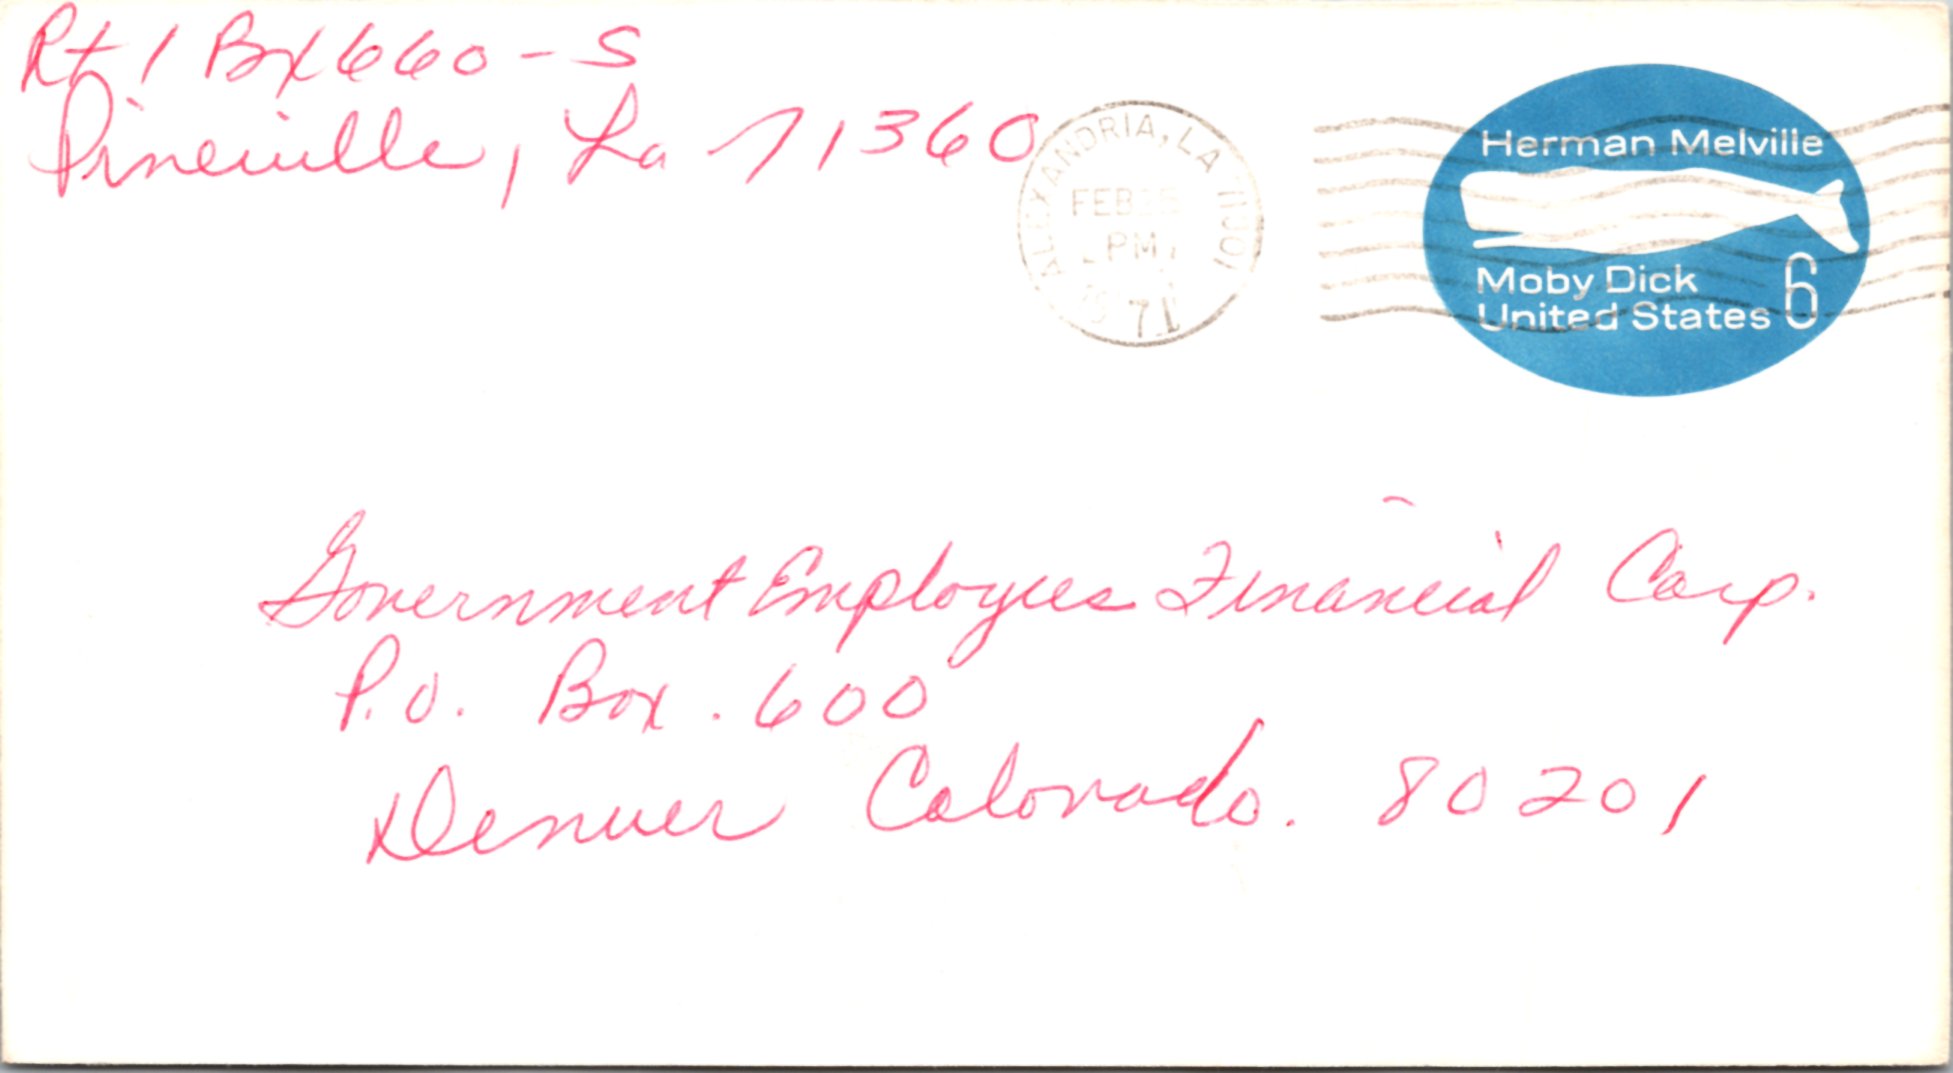 Rt 1 Box 660-S
Pineville, La 71360
ALEXANDRIA, LA
FEB
PM
1971
Herman Melville
Moby Dick
United States 6
Government Employees Financial Corp.
P.O. Box. 600
Denver Colorado. 80201